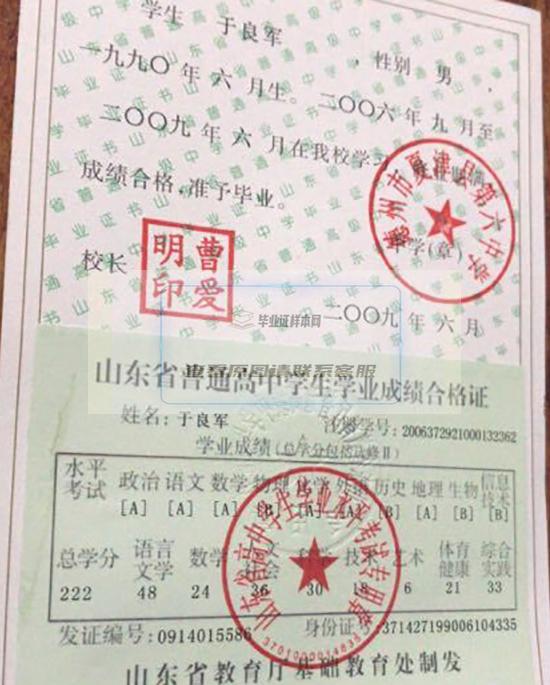 学生 于良军 ，性别 男 ，
一九九〇年六月生。二〇〇六年九月至
二〇〇九年六月在我校学习，修业期满
成绩合格,准予毕业。
德州市夏津县第六中学
中学(章)
校长
曹爱明印
二〇〇九年六月
毕业证样本网
要客原图请联系客服
山东省普通高中学生学业成绩合格证
姓名:于良军 注册学号:2006372921000132362
学业成绩(总学分包括选修Ⅱ)
水平考试 政治 语文 数学 物理 化学 外语 历史 地理 生物 信息技术
[A] [A] [A] [B] [A] [A] [B] [A] [B] [B]
总学分 语言文学 数学 人文社会 科学 技术 艺术 体育健康 综合实践
222 48 24 36 30 18 6 21 33
山东省高中学生学业水平考试专用章
3701000014835
发证编号:0914015586 身份证号:371427199006104335
山东省教育厅基础教育处制发